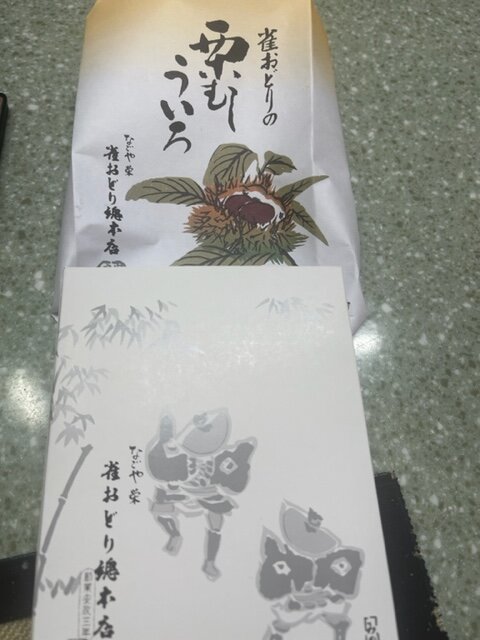 雀おどりの
栗むし
ういろ
なごや 栄
雀おどり總本店
なごや 栄
雀おどり總本店
創業安政三年